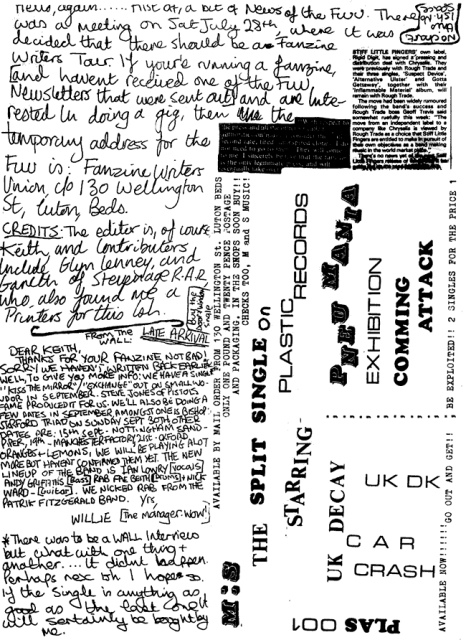 News, again...... First of, a bit of News of the FWU. There
was a meeting on Sat July 28th, where it was
decided that there should be a Fanzine
Writers Tour. If you're running a fanzine,
(and havent recieved one of the FWU
Newsletters that were sent out) and are inte-
rested in doing a gig, then the
temporary address for the
FWU is: Fanzine Writers
Union, c/o 130 Wellington
St, Luton, Beds.
CREDITS: The editor is, of course
Keith and contributers
include Glyn Lenney, and
Gareth of Stevenage R.A.R
who also found me a
Printers for this ish.
STIFF LITTLE FINGERS' own label,
Rigid Digit, has signed a pressing and
distribution deal with Chrysalis. They
were previously with Rough Trade and
their three singles, 'Suspect Device',
'Alternative Ulster' and 'Gotta
Getaway', together with their
'Inflammable Material' album, will
remain with Rough Trade.
The move had been widely rumoured
following the band's success and
Rough Trade boss Geoff Travis said
somewhat ruefully this week: "The
move from an independent label to a
company like Chrysalis is viewed by
Rough Trade as a choice that Stiff Little
Fingers are entitled to make, based on
their own objectives as a band making
music in the world market place."
From the
WALL:
LATE ARRIVAL
DEAR KEITH,
THANKS FOR YOUR FANZINE NOT BAD!
SORRY WE HAVEN'T WRITTEN BACK EARLIER
WELL, TO GIVE YOU MORE INFO: WE HAVE A SINGLE
"KISS THE MIRROR"/"EXCHANGE" OUT ON SMALL WO-
NDER IN SEPTEMBER. STEVE JONES OF PISTOLS
FAME PRODUCED IT FOR US. WE'LL ALSO BE DOING A
FEW DATES IN SEPTEMBER AMONGST ONE IS BISHOP
STORTFORD TRIAD ON SUNDAY SEPT 30TH OTHER
DATES ARE: 13TH SEPT - NOTTINGHAM SAND-
PIPER, 14TH - MANCHESTER FACTORY 21ST - OXFORD
ORANGES + LEMONS, WE WILL BE PLAYING A LOT
MORE BUT HAVENT CONFIRMED THEM YET. THE NEW
LINEUP OF THE BAND IS IAN LOWRY [VOCALS]
ANDY GRIFFITHS [BASS] RAB FAE BEITH [DRUMS] + NICK
WARD - [Guitar]. WE NICKED RAB FROM THE
PATRIK FITZGERALD BAND. Yrs,
WILLIE [The Manager Now]
*There was to be a WALL Interview
but what with one thing +
another.... it didnt happen.
Perhaps next ish I hope so.
If the single is anything as
good as the last one it
will sertainly be bought by
me.
AVAILABLE BY MAIL ORDER FROM 130 WELLINGTON St. LUTON BEDS
ONLY ONE POUND AND TWENTY PENCE POSTAGE
AND PACKAGING. IN THE SHOPS SOON BUY!!
CHECKS TOO, M and S MUSIC!
M'S
THE SPLIT SINGLE on
PLASTIC RECORDS
STARRING
PNEU MANIA
EXHIBITION
COMMING
ATTACK
UK DECAY
UK DK
CAR
CRASH
PLAS 001
AVAILABLE NOW!!!!!!!GO OUT AND GET!!
BE EXPLOITED!! 2 SINGLES FOR THE PRICE 1